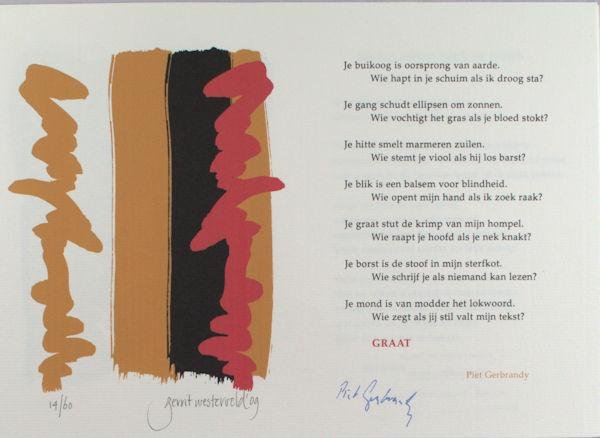 Je buikoog is oorsprong van aarde.
Wie hapt in je schuim als ik droog sta?
Je gang schudt ellipsen om zonnen.
Wie vochtigt het gras als je bloed stokt?
Je hitte smelt marmeren zuilen.
Wie stemt je viool als hij los barst?
Je blik is een balsem voor blindheid.
Wie opent mijn hand als ik zoek raak?
Je graat stut de krimp van mijn hompel.
Wie raapt je hoofd als je nek knakt?
Je borst is de stoof in mijn sterfkot.
Wie schrijf je als niemand kan lezen?
Je mond is van modder het lokwoord.
Wie zegt als jij stil valt mijn tekst?
GRAAT
Piet Gerbrandy
14/60
gerrit westerveld '09
Piet Gerbrandy